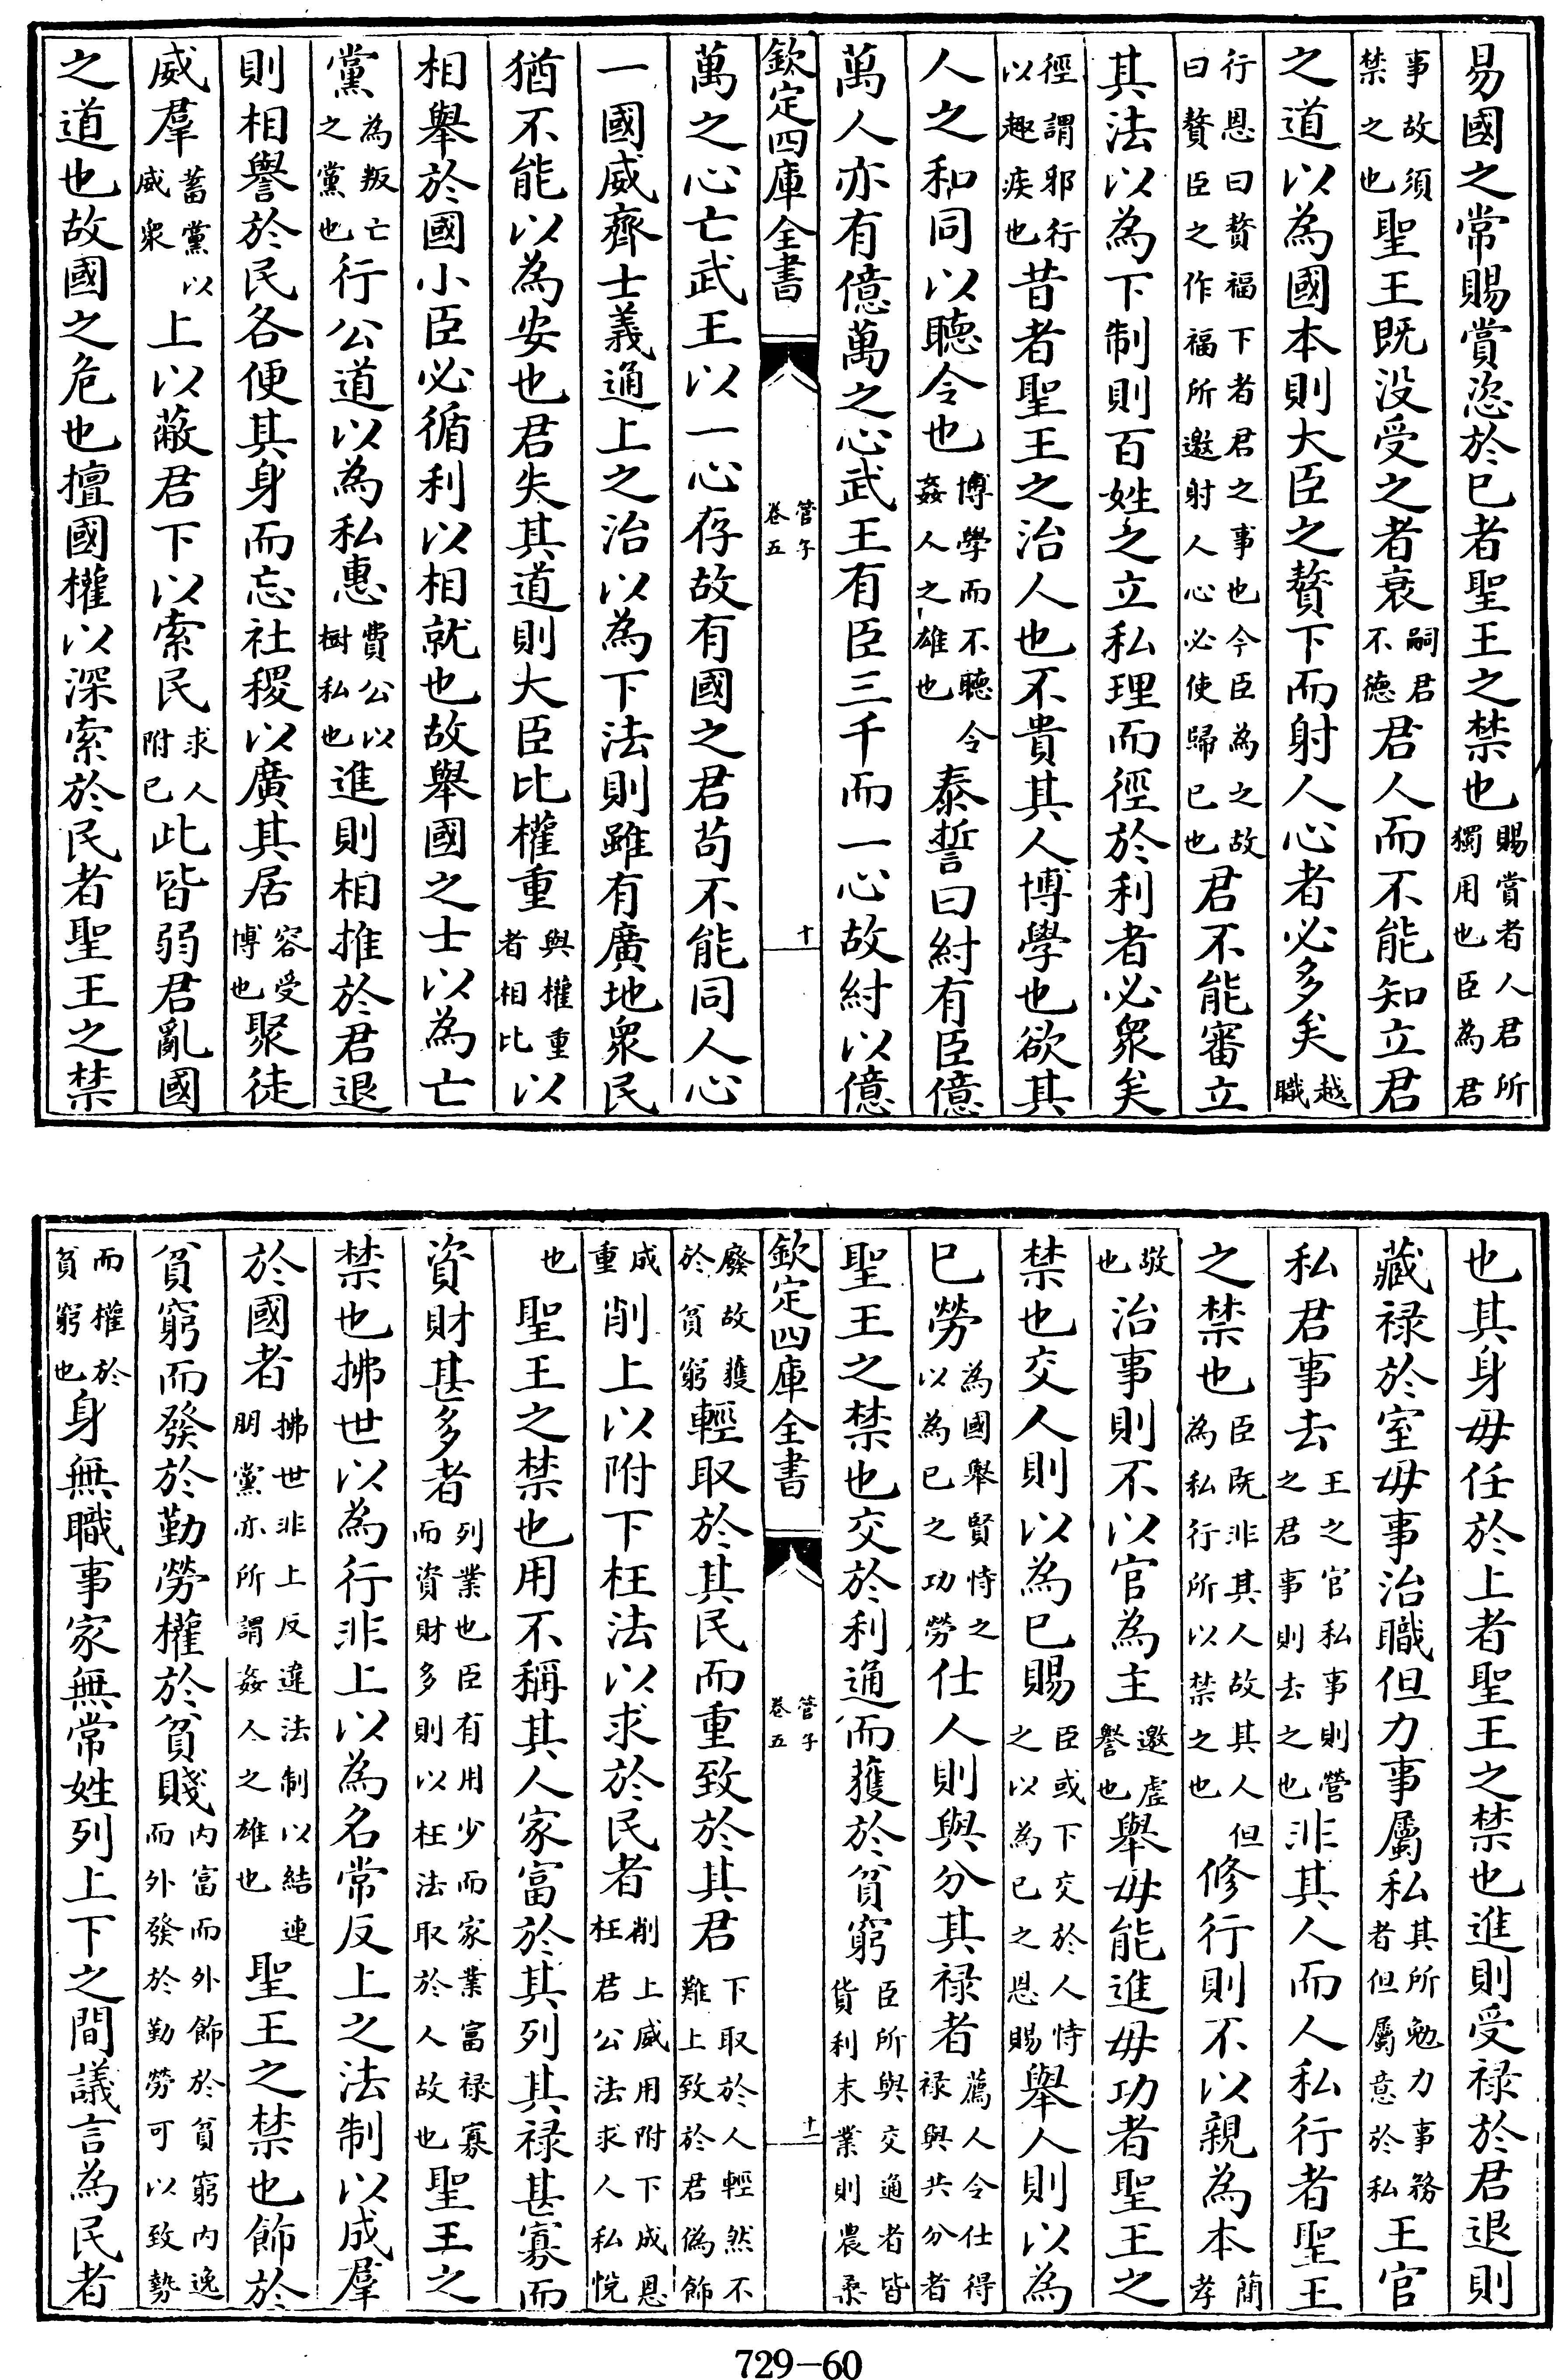 易國之常賜賞恣於已者聖王之禁也賜賞者人君所獨用也臣為君
事故須禁之也聖王既没受之者衰嗣君不德君人而不能知立君
之道以為國本則大臣之贅下而射人心者必多矣越職
行恩曰贅福下者君之事也今臣為之故曰贅臣之作福所邀射人心必使歸已也君不能審立
其法以為下制則百姓之立私理而徑於利者必衆矣
徑謂邪行以趣疾也昔者聖王之治人也不貴其人博學也欲其
人之和同以聽令也博學而不聽令姦人之雄也泰誓曰紂有臣億
萬人亦有億萬之心武王有臣三千而一心故紂以億
欽定四庫全書
管子
卷五
十
萬之心亡武王以一心存故有國之君苟不能同人心
一國威齊士義通上之治以為下法則雖有廣地衆民
猶不能以為安也君失其道則大臣比權重與權重者相比以
相舉於國小臣必循利以相就也故舉國之士以為亡
黨為叛亡之黨也行公道以為私惠費公以樹私也進則相推於君退
則相譽於民各便其身而忘社稷以廣其居容受博也聚徒
威羣蓄黨以威衆上以蔽君下以索民求人附已此皆弱君亂國
之道也故國之危也擅國權以深索於民者聖王之禁
也其身毋任於上者聖王之禁也進則受禄於君退則
藏禄於室毋事治職但力事屬私其所勉力事務者但屬意於私王官
私君事去王之官私事則營之君事則去之也非其人而人私行者聖王
之禁也臣既非其人故其人但為私行所以禁之也修行則不以親為本簡孝
敬也治事則不以官為主邀虛譽也舉毋能進毋功者聖王之
禁也交人則以為已賜臣或下交於人恃之以為已之恩賜舉人則以為
已勞為國舉賢恃之以為已之功勞仕人則與分其禄者薦人令仕得禄與共分者
聖王之禁也交於利通而獲於貧窮臣所與交通者皆貨利末業則農桑
欽定四庫全書
管子
卷五
十一
廢故獲於貧窮輕取於其民而重致於其君下取於人輕然不難上致於君偽飾
成重削上以附下枉法以求於民者削上威用附下成恩枉君公法求人私悅
也聖王之禁也用不稱其人家富於其列其禄甚寡而
資財甚多者列業也臣有用少而家業富禄寡而資財多則以枉法取於人故也聖王之
禁也拂世以為行非上以為名常反上之法制以成羣
於國者拂世非上反違法制以結連朋黨亦所謂姦人之雄也聖王之禁也飾於
貧窮而發於勤勞權於貧賤内富而外飾於貧窮内逸而外發於勤勞可以致勢
而權於貧窮也身無職事家無常姓列上下之間議言為民者
729-60